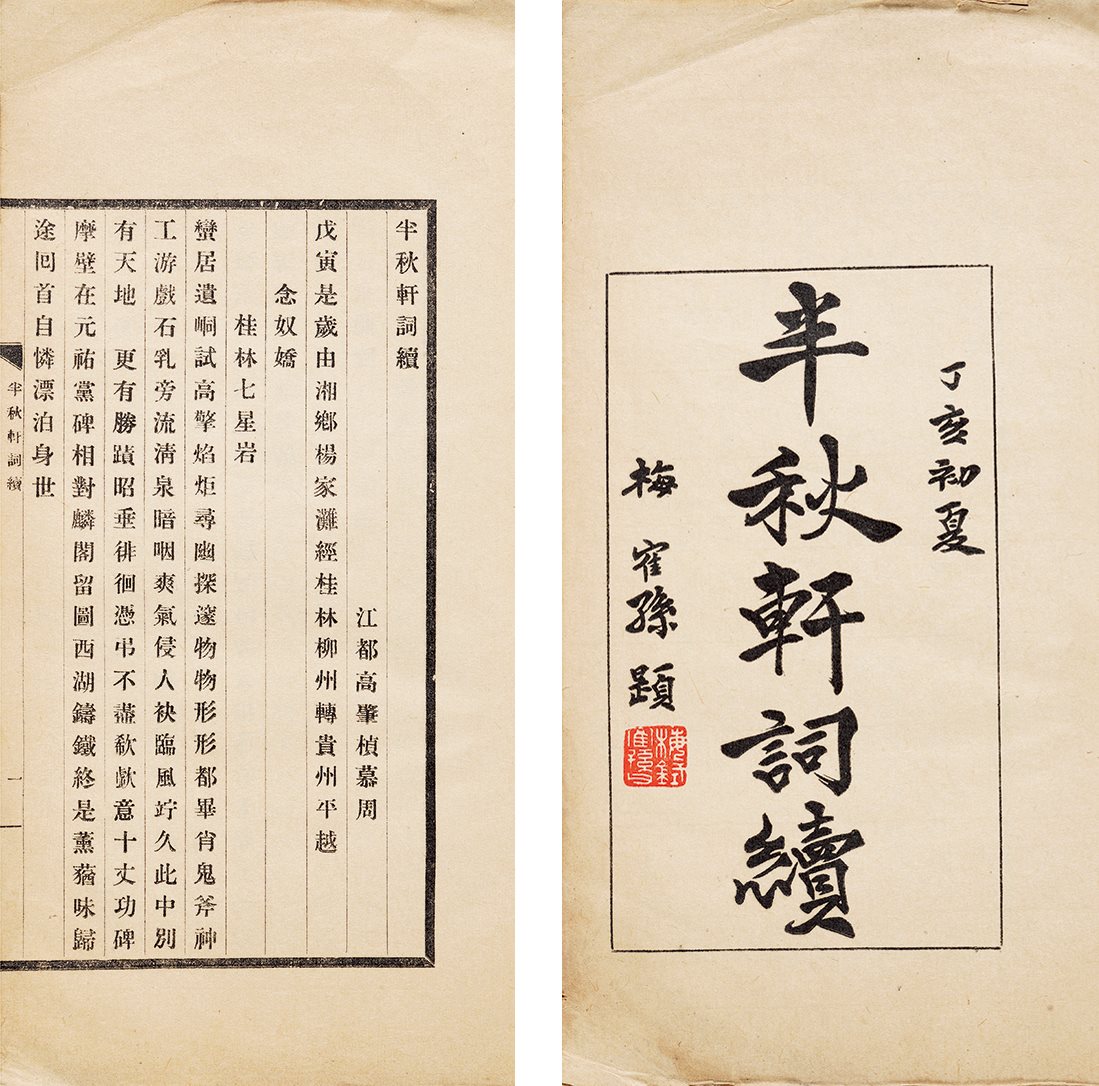 丁亥初夏
半秋軒詞續
梅寉孫題
半秋軒詞續
江都高肇楨慕周
戊寅是歲由湘鄉楊家灘經桂林柳州轉貴州平越
念奴嬌
桂林七星岩
蠻居遺峒試高擎焰炬尋幽探邃物物形形都畢肖鬼斧神
工游戲石乳旁流淸泉暗咽爽氣侵人袂臨風竚久此中別
有天地　更有勝蹟昭垂徘徊憑弔不盡欷歔意十丈功碑
摩壁在元祐黨碑相對麟閣留圖西湖鑄鐵終是薰蕕味歸
途回首自憐漂泊身世
半秋軒詞續
一